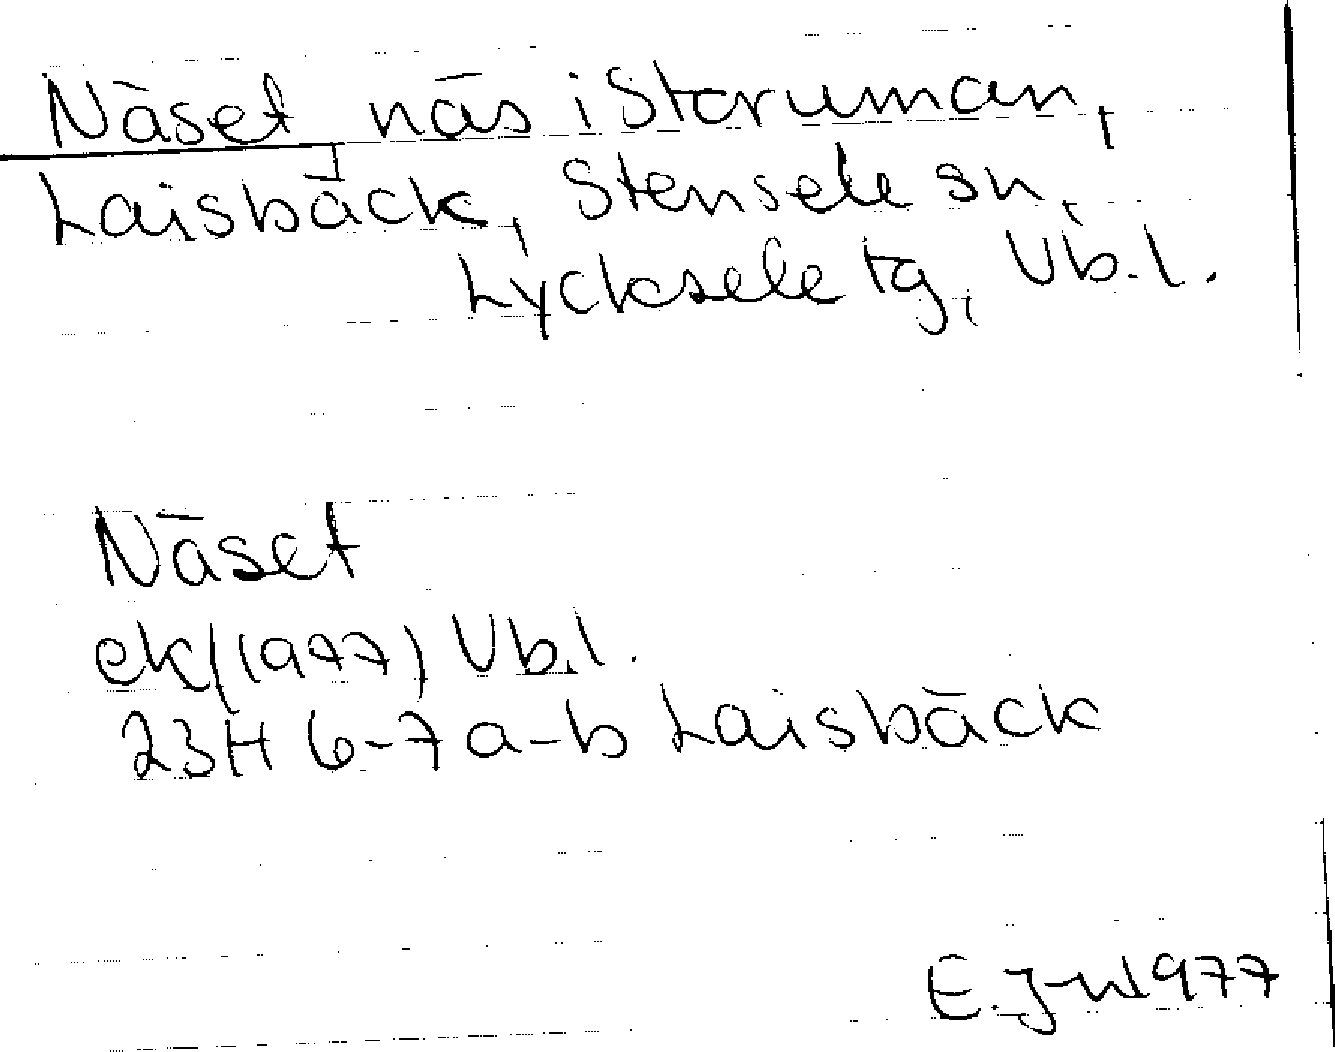 Näset näs i Storuman,
Laisbäck, Stensele sn,
Lycksele tg, Vb.l.
Näset
ek (1977) Vb.l.
23H 6-7 a-b Laisbäck
E. J-n 1977